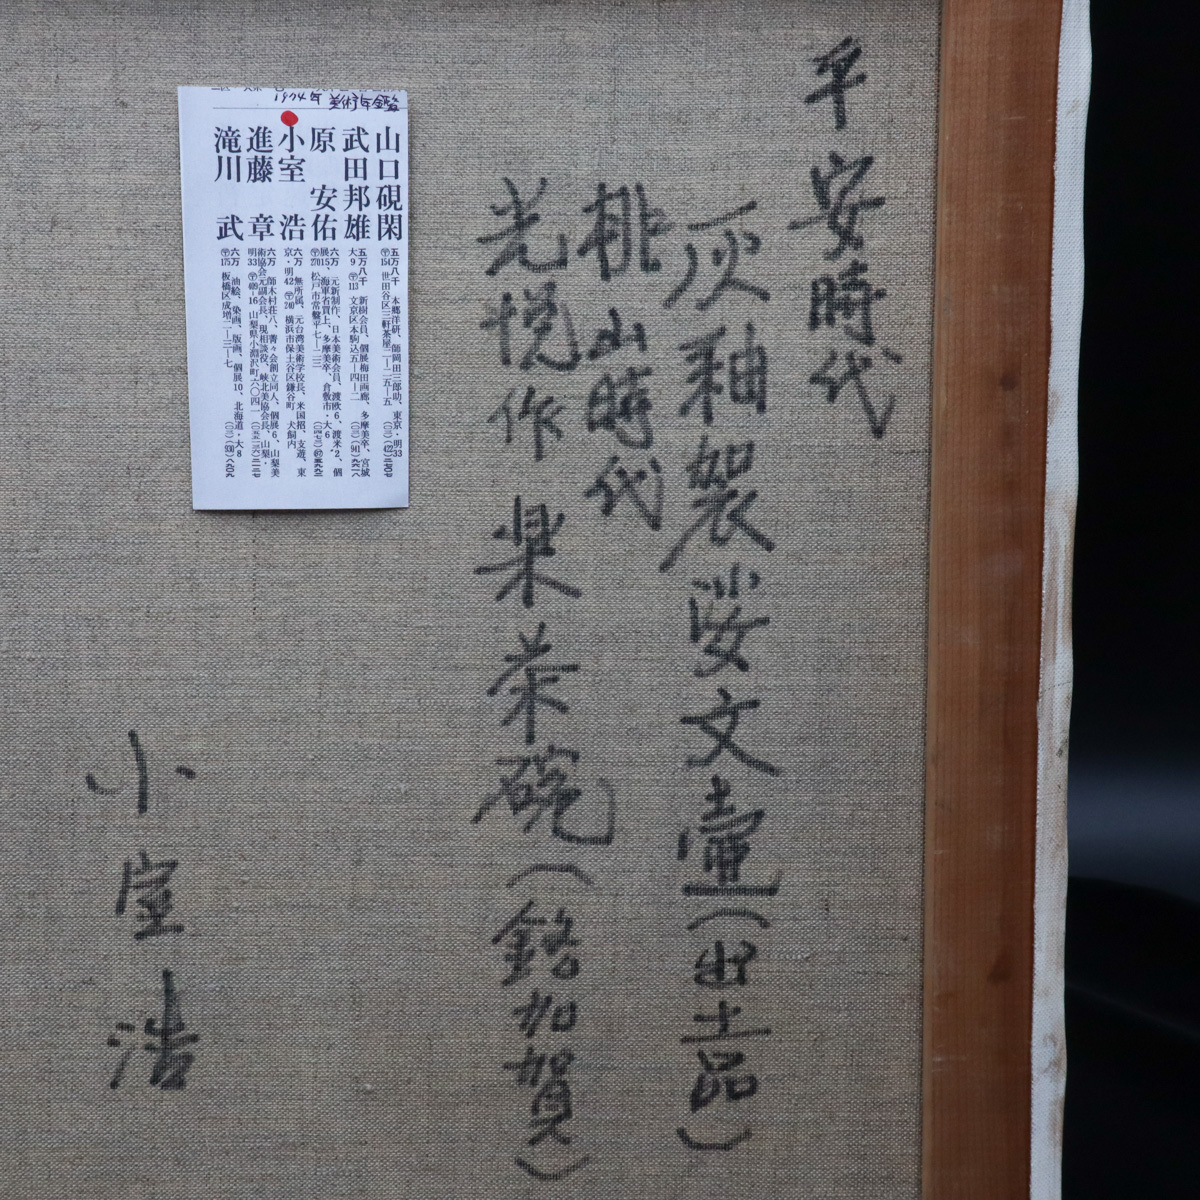 平安時代
灰釉袈裟文壷(出土品)
桃山時代
光悦作 楽茶碗(銘加賀)
小室浩
1974年 美術年鑑
山口硯閑
武田邦雄
原 安佑
小室 浩
進藤 章
滝川 武
五万八千 本郷洋研、師岡田三郎助、東京・明33
〒154 世田谷区三軒茶屋二―二五―五
五万八千 新樹会員、個展梅田画廊、多摩美卒、宮城
大9 〒113 文京区本駒込五―四―二
六万 元新制作、日本美術会員、渡欧6、渡米2、個
展15、海軍省買上、多摩美卒、倉敷市・大6
〒270 松戸市常盤平七―二二
六万 無所属、元台湾美術学校長、米国招、支遊、東
京・明42 〒240 横浜市保土谷区鎌谷町 犬飼内
六万 師木村荘八、菁々会創立同人、個展6、山梨美
術協会元副会長、現相談役、峡北美協会長、山梨・
明33 〒409-16 山梨県小淵沢町六〇四一
六万 油絵、染画、版画、個展10、北海道・大8
〒175 板橋区成増二―三―七